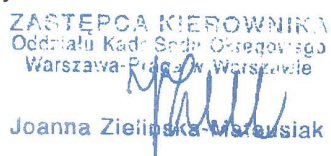 ZASTĘPCA KIEROWNIKA
Oddziału Kadr Sądu Okręgowego
Warszawa-Praga w Warszawie
Joanna Zielińska-Matusiak